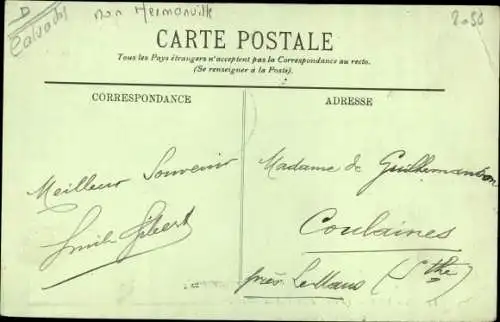 D
Calvados
non Hermanville
2-50
CARTE POSTALE
Tous les Pays étrangers n'acceptent pas la Correspondance au recto.
(Se renseigner à la Poste).
CORRESPONDANCE
Meilleur Souvenir
Emile Gibert
ADRESSE
Madame de
Coulaines
près Le Mans (Sthe)